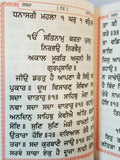 ਧਨਾਸਰੀ ਮਹਲਾ ੧ ਘਰੁ ੧ ਚਉਪਦੇ
ੴ ਸਤਿਨਾਮੁ ਕਰਤਾ ਪੁਰਖੁ
ਨਿਰਭਉ ਨਿਰਵੈਰੁ
ਅਕਾਲ ਮੂਰਤਿ ਅਜੂਨੀ ਸੈਭੰ
ਗੁਰਪ੍ਰਸਾਦਿ॥
ਜੀਉ ਡਰਤੁ ਹੈ ਆਪਣਾ ਕੈ ਸਿਉ ਕਰੀ
ਪੁਕਾਰ॥ ਦੂਖ ਵਿਸਾਰਣੁ ਸੇਵਿਆ ਸਦਾ
ਸਦਾ ਦਾਤਾਰੁ॥੧॥ ਸਾਹਿਬੁ ਮੇਰਾ ਨੀਤ
ਨਵਾ ਸਦਾ ਸਦਾ ਦਾਤਾਰੁ॥੧॥ ਰਹਾਉ॥
ਅਨਦਿਨੁ ਸਾਹਿਬੁ ਸੇਵੀਐ ਅੰਤਿ ਛਡਾਏ
ਸੋਇ॥ ਸੁਣਿ ਸੁਣਿ ਮੇਰੀ ਕਾਮਣੀ ਪਾਰਿ
ਉਤਾਰਾ ਹੋਇ॥੨॥ ਦਇਆਲ ਤੇਰੈ ਨਾਮਿ